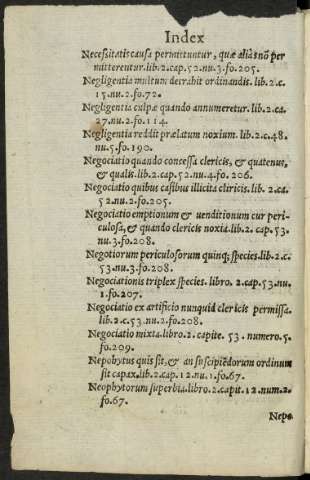 Index
Necessitatis causa permittuntur, quæ aliàs nõ per
mitterentur. lib. 2. cap. 52. nu. 3. fo. 205.
Negligentia multum detrahit ordinandis. lib. 2. c.
15. nu. 2. fo. 72.
Negligentia culpæ quando annumeretur. lib. 2. ca.
27. nu. 2. fo. 114.
Negligentia reddit prælatum noxium. lib. 2. c. 48.
nu. 5. fo. 190.
Negociatio quando concessa clericis, & quatenus,
& qualis. lib. 2. cap. 52. nu. 4. fo. 206.
Negociatio quibus casibus illicita cliricis. lib. 2. ca.
52. nu. 2. fo. 205.
Negociatio emptionum & uenditionum cur peri-
culosa, & quando clericis noxia. lib. 2. cap. 53.
nu. 3. fo. 208.
Negotiorum periculosorum quinq; species. lib. 2. c.
53. nu. 3. fo. 208.
Negociationis triplex species. libro. 2. cap. 53. nu.
1. fo. 207.
Negociatio ex artificio nunquid clericis permissa.
lib. 2. c. 53. nu. 2. fo. 208.
Negociatio mixta. libro. 2. capite. 53. numero. 5.
fo. 209.
Nepohytus quis sit, & an suscipiẽdorum ordinum
sit capax. lib. 2. cap. 12. nu. 1. fo. 67.
Neophytorum superbia. libro. 2. capit. 12. num. 2.
fo. 67.
Nepo